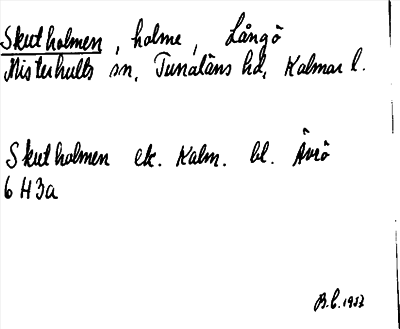 Skutholmen, holme, Långö
Misterhults sn, Tunaläns hd, Kalmar l.
Skutholmen ek. Kalm. bl. Ävrö
6 H 3a
B.C. 1953